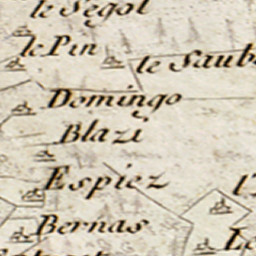 le Ségol
le Pin
le Saub
Domingo
Blazi
Espiez
Bernas
Le